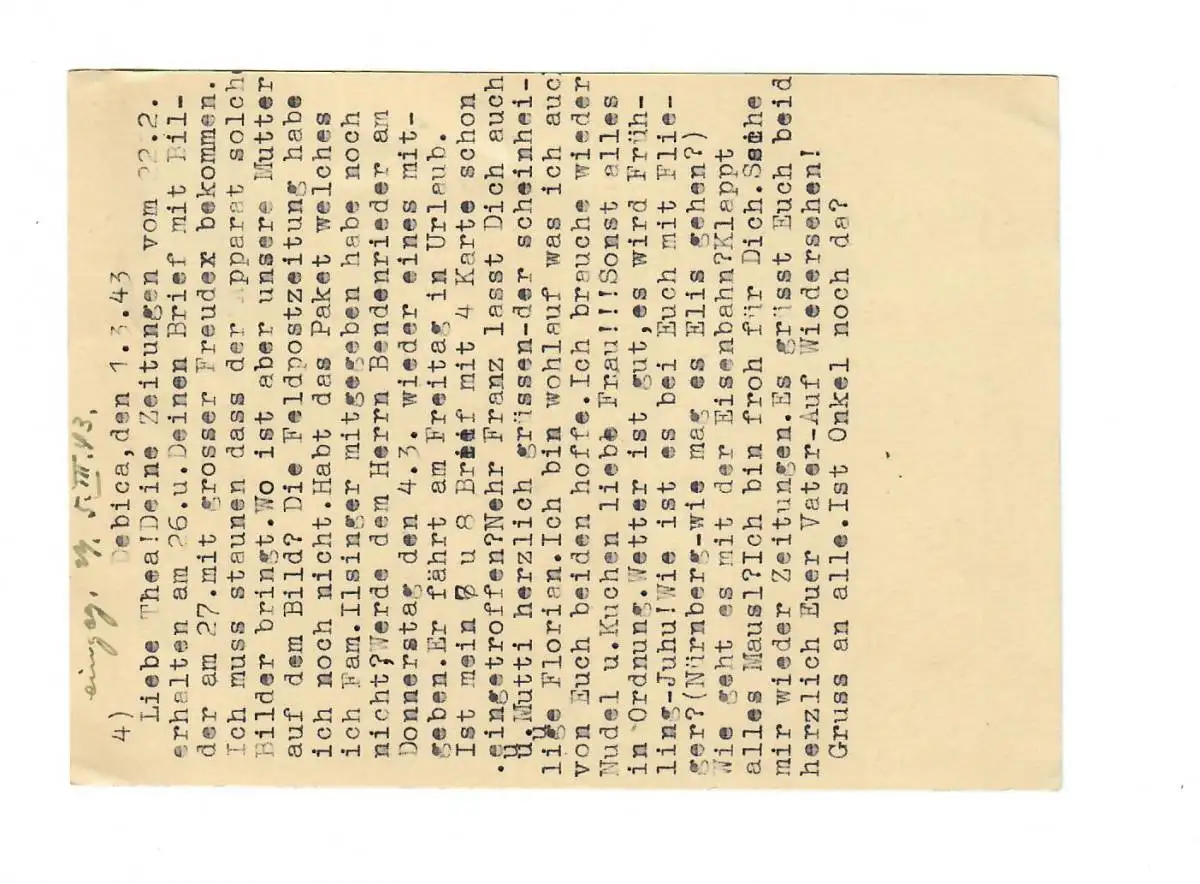 eingeg. 5.III.43.
4) Debica,den 1.3.43
Liebe Thea!Deine Zeitungen vom 22.2.
erhalten am 26.u.Deinen Brief mit Bil-
der am 27.mit grosser Freudex bekommen.
Ich muss staunen dass der Apparat solche
Bilder bringt.Wo ist aber unsere Mutter
auf dem Bild? Die Feldpostzeitung habe
ich noch nicht.Habt das Paket welches
ich Fam.Ilsinger mitgegeben habe noch
nicht?Werde dem Herrn Bendenrieder am
Donnerstag den 4.3. wieder eines mit-
geben.Er fährt am Freitag in Urlaub.
Ist mein 7 u 8 Brief mit 4 Karte schon
eingetroffen?Nehr Franz lasst Dich auch
u.Mutti herzlich grüssen-der scheinhei-
lige Florian.Ich bin wohlauf was ich auch
von Euch beiden hoffe.Ich brauche wieder
Nudel u.Kuchen liebe Frau!!!Sonst alles
in Ordnung.Wetter ist gut,es wird Früh-
ling-Juhu!Wie ist es bei Euch mit Flie-
ger?(Nürnberg-wie mag es Elis gehen?)
Wie geht es mit der Eisenbahn?Klappt
alles Mausl?Ich bin froh für Dich.Sende
mir wieder Zeitungen.Es grüsst Euch beid
herzlich Euer Vater-Auf Wiedersehen!
Gruss an alle.Ist Onkel noch da?